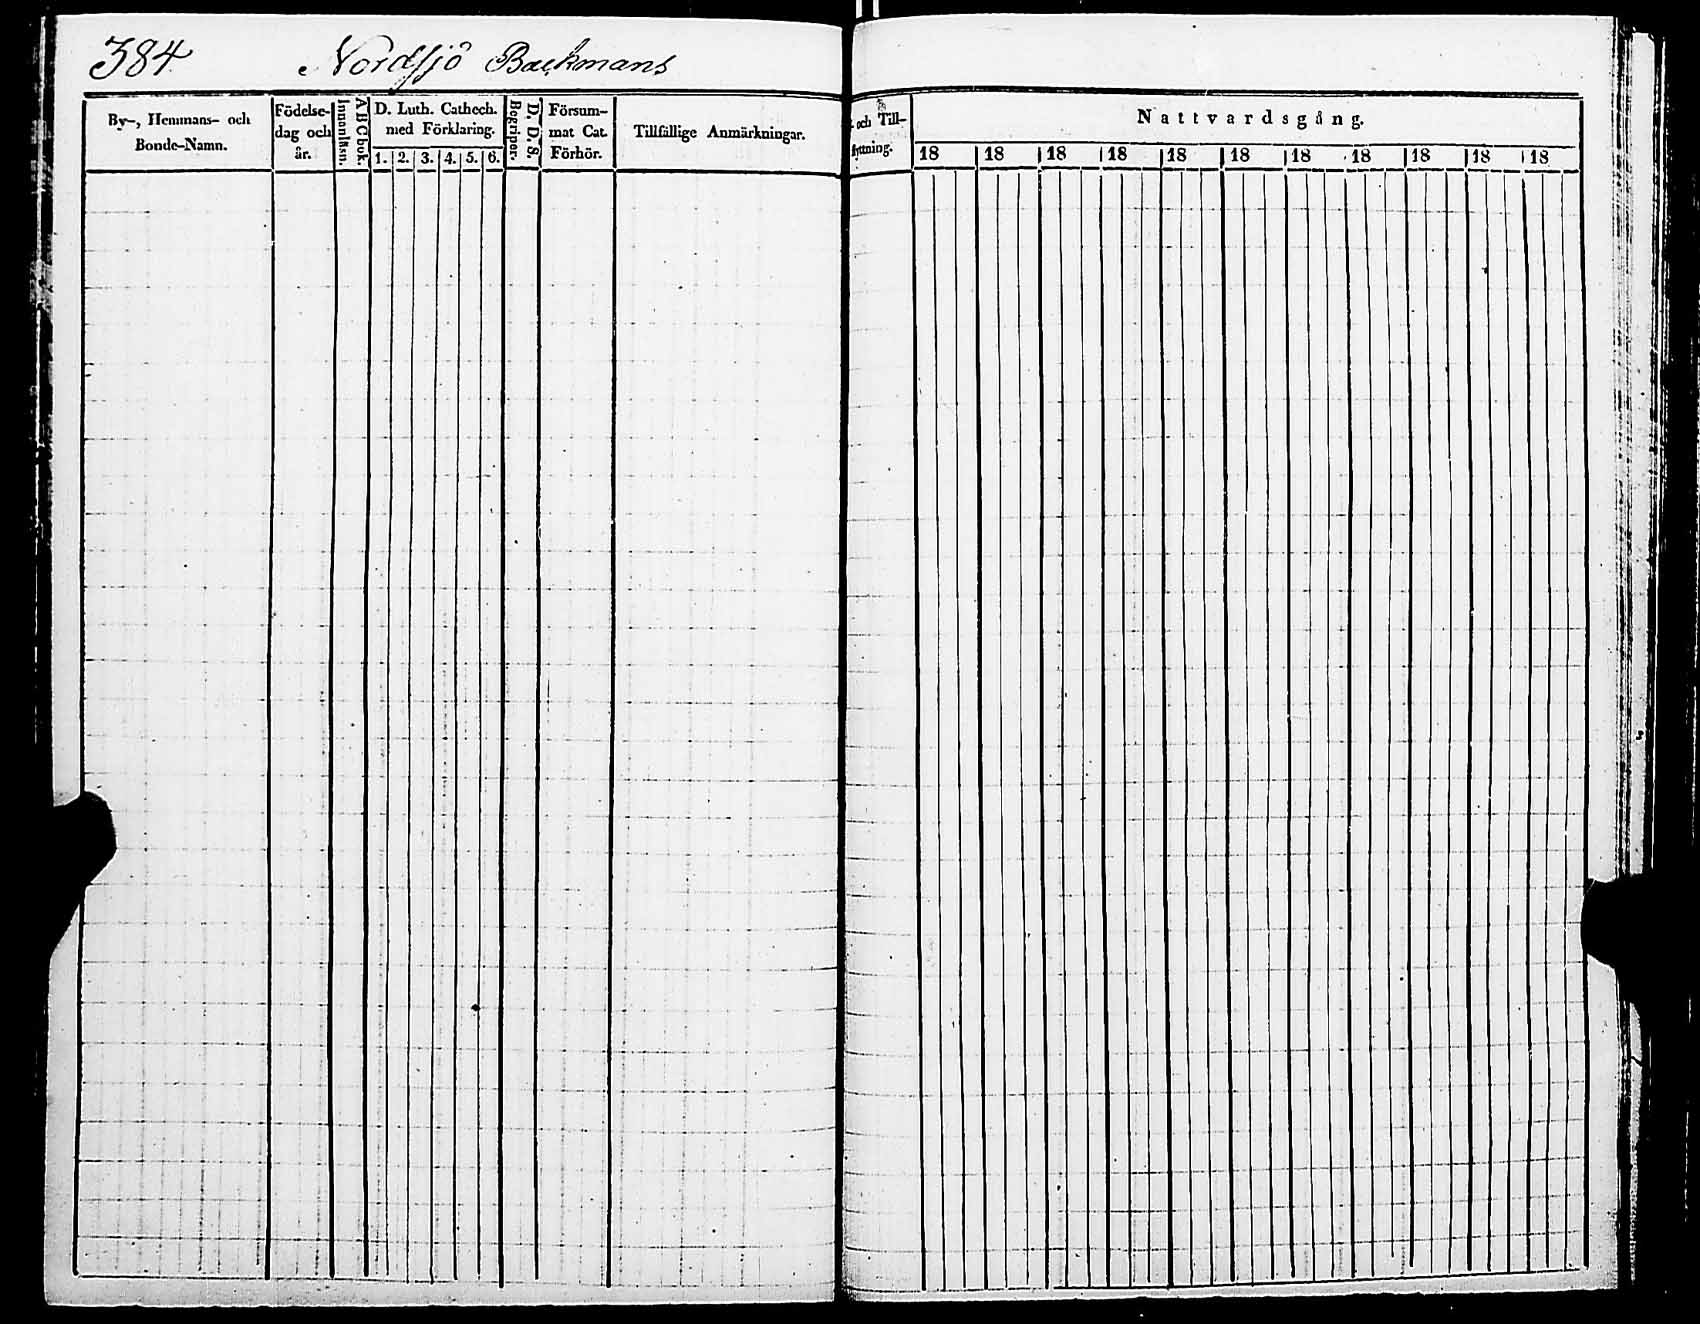 384. Nordsjö Backmans
By-, Hemmans- och
Bonde-Namn.
Födelse-
dag och
år.
Innanläsn.
ABCbok.
D. Luth. Cathech.
med Förklaring.
1. 2. 3. 4. 5. 6.
Begriper.
D. D. S.
Försum-
mat Cat.
Förhör.
Tillfällige Anmärkningar.
och Till-
flyttning.
Nattvardsgång.
18 18 18 18 18 18 18 18 18 18 18